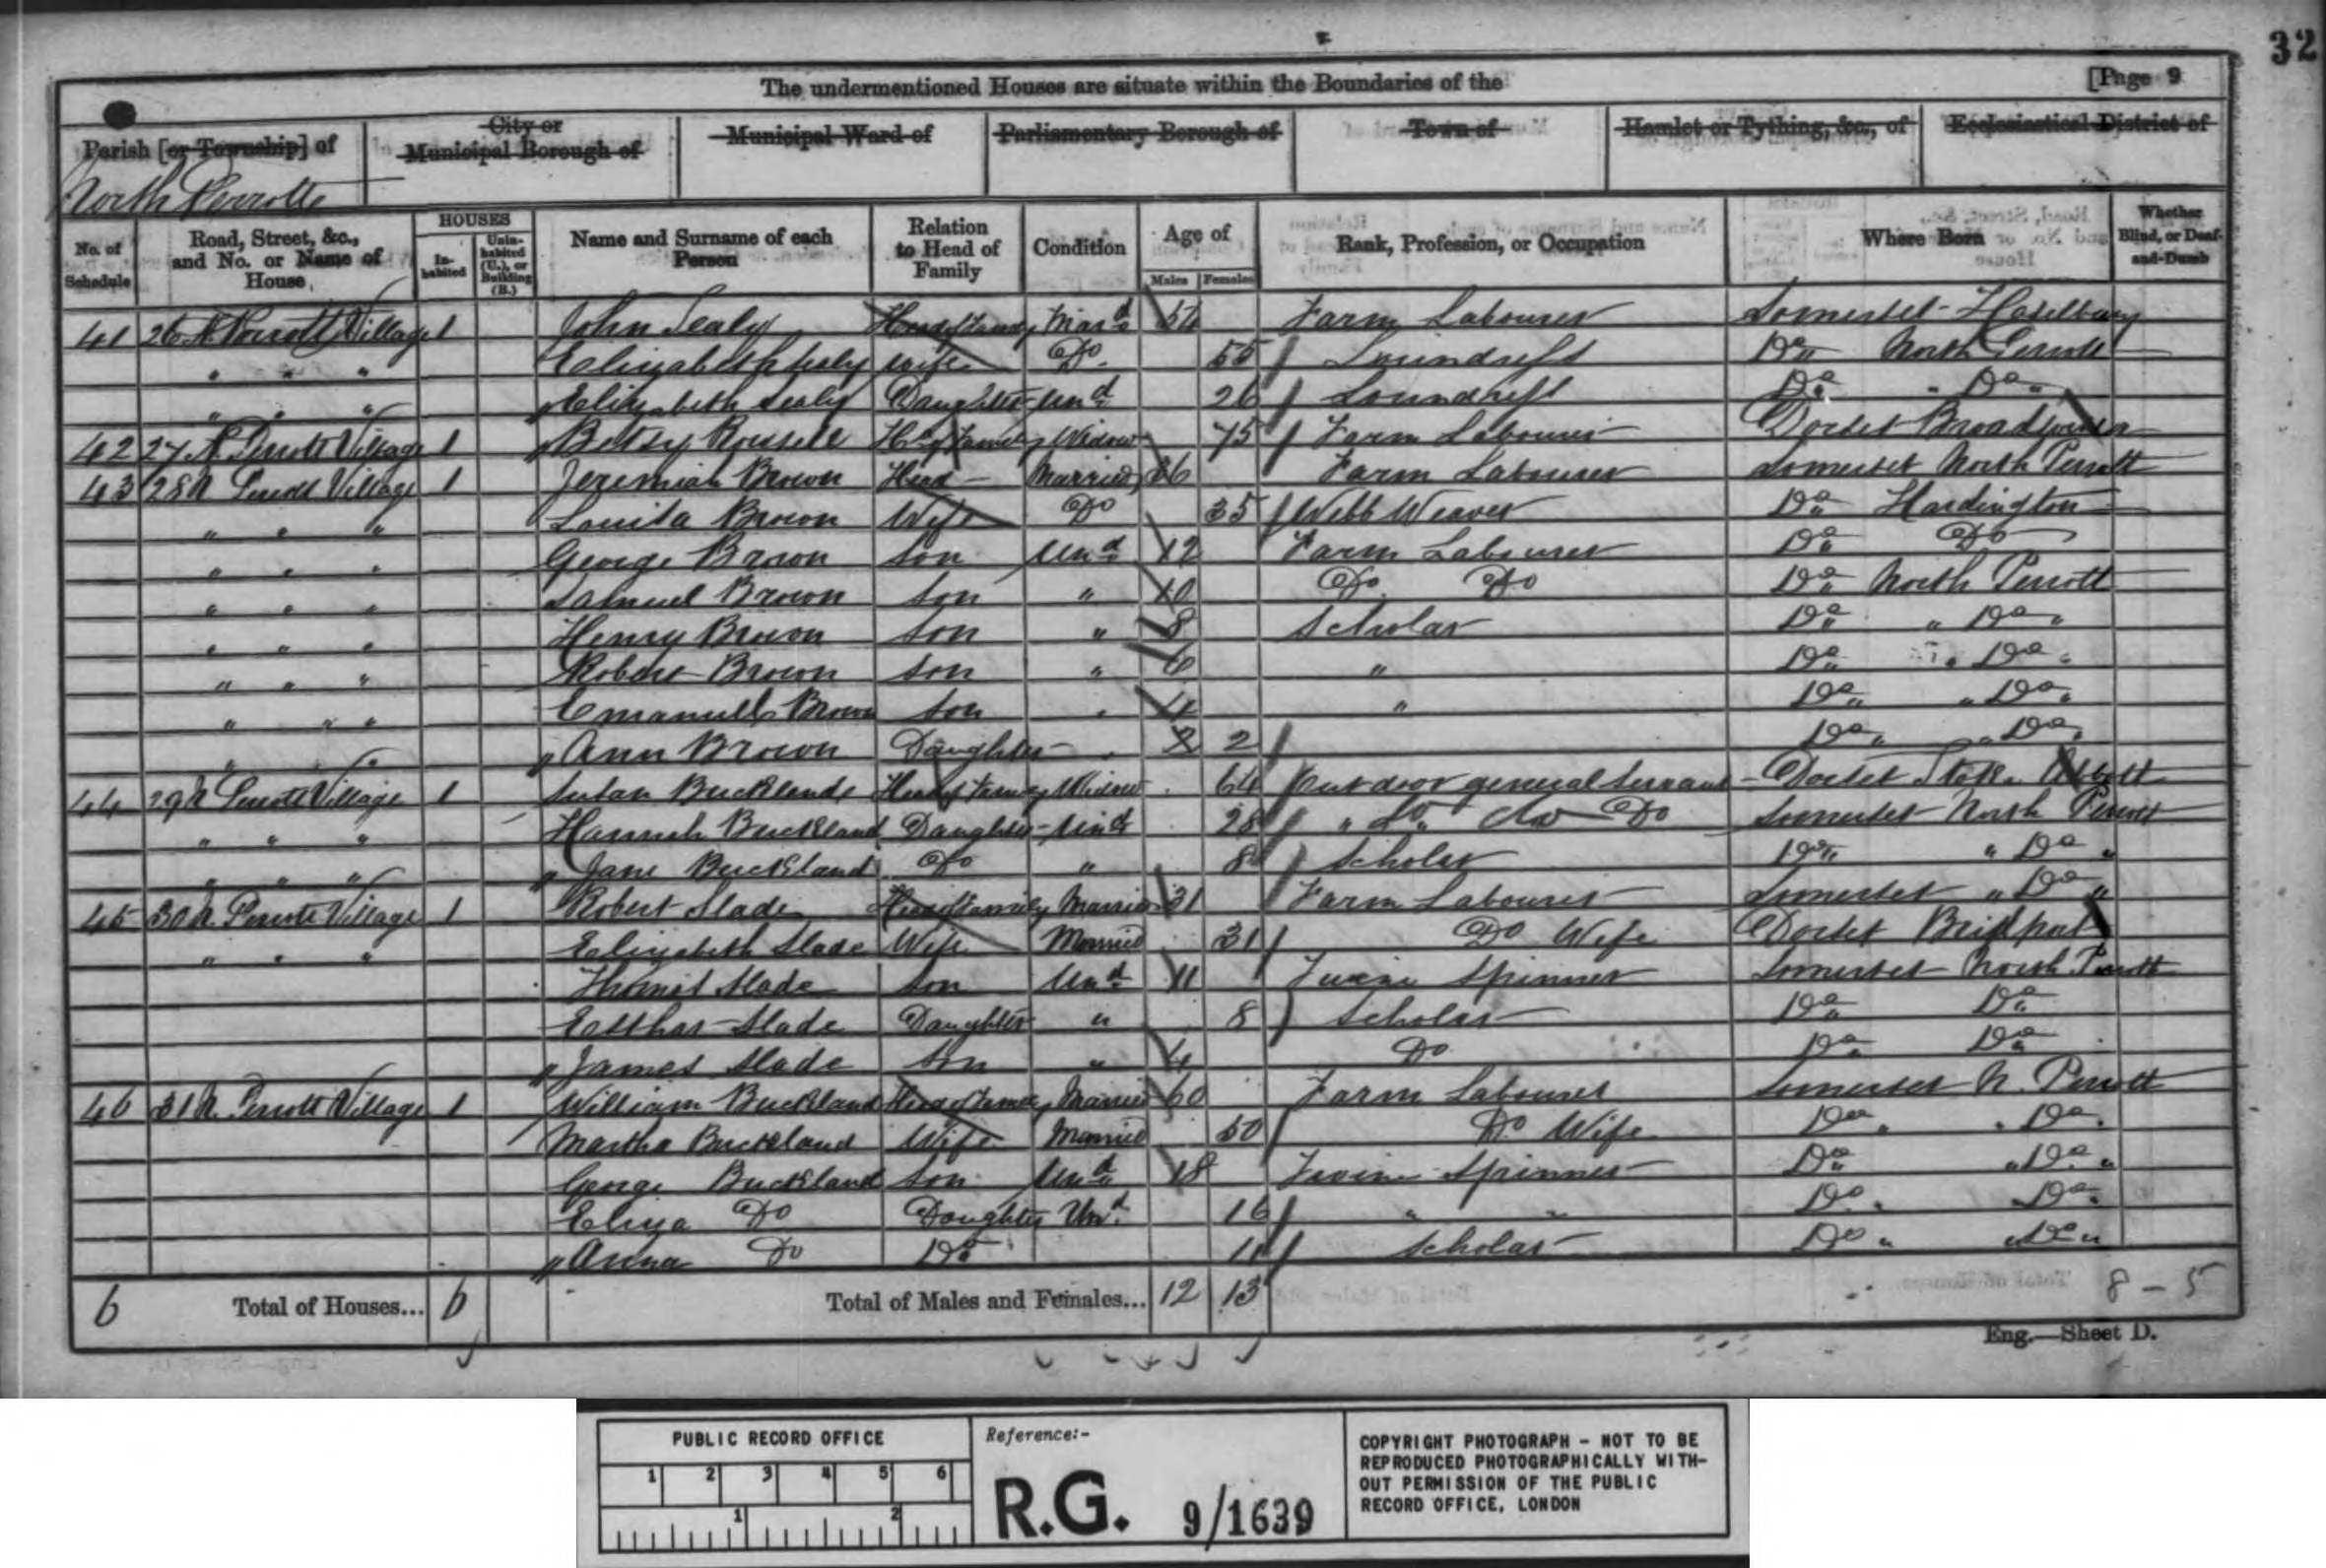 32
The undermentioned Houses are situate within the Boundaries of the [Page 9
Parish [or Township] of City or Municipal Borough of Municipal Ward of Parliamentary Borough of Town of Hamlet or Tything, &c., of Ecclesiastical District of
North Perrott
No. of Schedule Road, Street, &c., and No. or Name of House HOUSES Inhabited Uninhabited (U.), or Building (B.) Name and Surname of each Person Relation to Head of Family Condition Age of Males Females Rank, Profession, or Occupation Where Born Whether Blind, or Deaf-and-Dumb
41 26 N. Perrott Village 1 John Sealy Head of Family Mard 54 Farm Labourer Somerset Haselbury
" " " Elizabeth Sealy Wife Do. 55 Laundress Do North Perrott
" " " Elizabeth Sealy Daughter Und 26 Laundress Do " Do "
42 27 N. Perrott Village 1 Betsy Russell Hd of Family Widow 75 Farm Labourer Dorset Broadwinsor
43 28 N Perrott Village 1 Jeremiah Brown Head Married 36 Farm Labourer Somerset North Perrott
" " " Louisa Brown Wife Do 35 Webb Weaver Do Hardington
" " " George Brown Son Und 12 Farm Labourer Do Do
" " " Samuel Brown Son " 10 Do Do Do North Perrott
" " " Henry Brown Son " 8 Scholar Do " Do "
" " " Robert Brown Son " 6 " Do " Do "
" " " Emanuell Brown Son " 4 " Do " Do "
" " " Ann Brown Daughter " 2 Do " Do "
44 29 N Perrott Village 1 Susan Buckland Head of Family Widow 64 Out door general Servant Dorset Stoke Abbott
" " " Hannah Buckland Daughter Und 28 " Do " Do Do Somerset North Perrott
" " " Jane Buckland Do " 8 Scholar Do " Do "
45 30 N. Perrott Village 1 Robert Slade Head of Family Married 31 Farm Labourer Somerset " Do "
" " " Elizabeth Slade Wife Married 31 Do Wife Dorset Bridport
Slade Son Und 11 Twine Spinner Somerset North Perrott
Esther Slade Daughter " 8 Scholar Do Do
" James Slade Son " 4 Do Do Do
46 31 N. Perrott Village 1 William Buckland Head of Family Married 60 Farm Labourer Somerset N. Perrott
Martha Buckland Wife Married 50 Do Wife Do " " Do "
George Buckland Son Und 18 Twine Spinner Do " Do "
Eliza Do Daughter Und 16 " " Do " Do "
" Anna Do Do 11 Scholar Do " " Do "
6 Total of Houses... 6 Total of Males and Females... 12 13 8 - 5
Eng.—Sheet D.
PUBLIC RECORD OFFICE
1 2 3 4 5 6
1 2
Reference:-
R.G. 9/1639
COPYRIGHT PHOTOGRAPH - NOT TO BE
REPRODUCED PHOTOGRAPHICALLY WITH-
OUT PERMISSION OF THE PUBLIC
RECORD OFFICE, LONDON